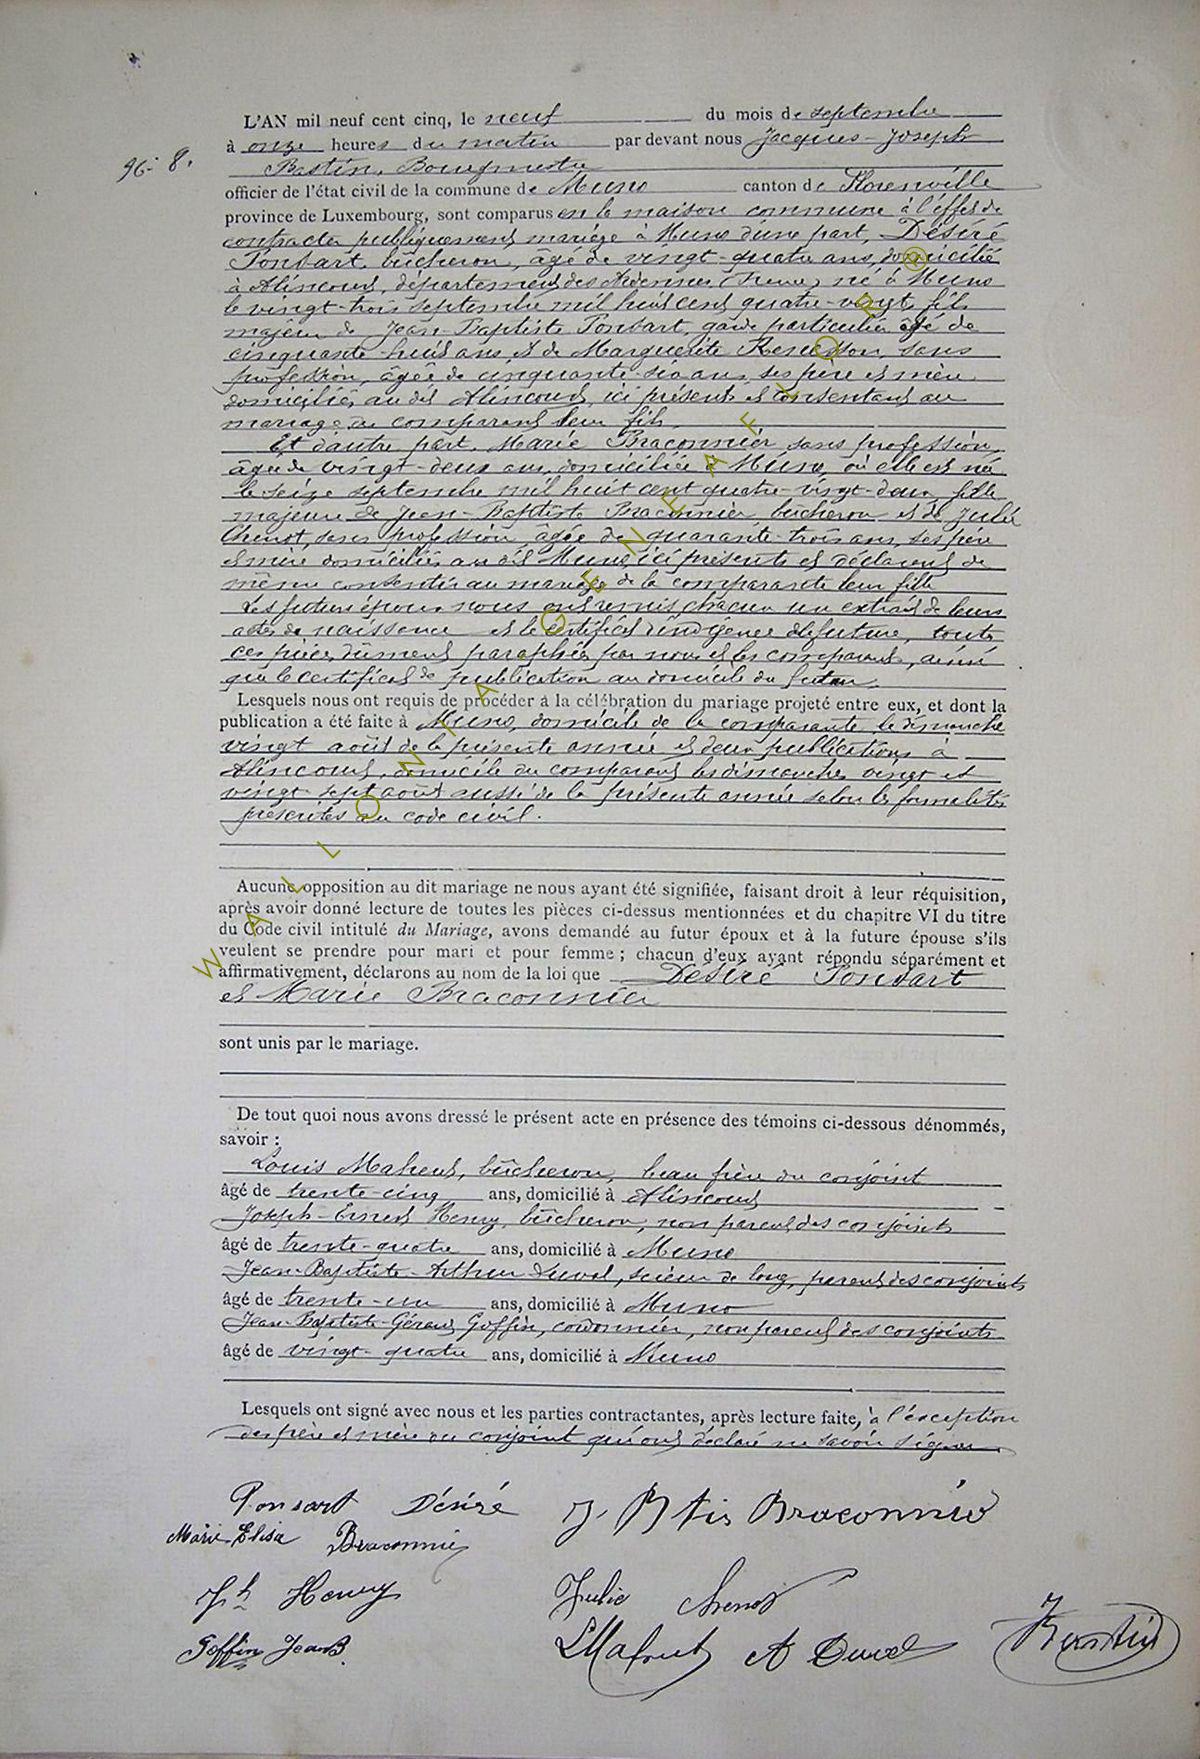 L'AN mil neuf cent cinq, le neuf du mois de septembre
à onze heures du matin par devant nous Jacques-Joseph
96- 8.
Bastin, Bourgmestre
officier de l'état civil de la commune de Muno canton de Florenville
province de Luxembourg, sont comparus en la maison commune à l'effet de
contracter publiquement mariage à Muno d'une part, Désiré
Ponsart, bûcheron, âgé de vingt-quatre ans, domicilié
à Alincourt, département des Ardennes (France) né à Muno
le vingt-trois septembre mil huit cent quatre-vingt, fils
majeur de Jean-Baptiste Ponsart, garde particulier âgé de
cinquante-huit ans et de Marguerite Renesson, sans
profession, âgée de cinquante-six ans, ses père et mère
domiciliés au dit Alincourt, ici présents et consentant au
mariage du comparant leur fils.
Et d'autre part, Marie Braconnier, sans profession,
âgée de vingt-deux ans, domiciliée à Muno, où elle est née
le seize septembre mil huit cent quatre-vingt-deux, fille
majeure de Jean-Baptiste Braconnier bûcheron et de Julie
Chenot, sans profession, âgée de quarante-trois ans, ses père
et mère domiciliés au dit Muno, ici présents et déclarant de
même consentir au mariage de la comparante leur fille
Les futurs époux nous ont remis chacun un extrait de leurs
actes de naissance et le certificat d'indigence future, toutes
ces pièces dûment paraphées par nous et les comparants, ainsi
que le certificat de publication au domicile du futur.
Lesquels nous ont requis de procéder à la célébration du mariage projeté entre eux, et dont la
publication a été faite à Muno, domicile de la comparante, le dimanche
vingt août de la présente année et deux publications à
Alincourt, domicile du comparant les dimanches vingt et
vingt-sept août aussi de la présente année selon les formalités
prescrites au code civil.
Aucune opposition au dit mariage ne nous ayant été signifiée, faisant droit à leur réquisition,
après avoir donné lecture de toutes les pièces ci-dessus mentionnées et du chapitre VI du titre
du Code civil intitulé du Mariage, avons demandé au futur époux et à la future épouse s'ils
veulent se prendre pour mari et pour femme ; chacun d'eux ayant répondu séparément et
affirmativement, déclarons au nom de la loi que Désiré Ponsart
et Marie Braconnier
sont unis par le mariage.
De tout quoi nous avons dressé le présent acte en présence des témoins ci-dessous dénommés,
savoir :
Louis Maheut, bûcheron, beau frère du conjoint
âgé de trente-cinq ans, domicilié à Alincourt
Joseph-Ernest Henry, bûcheron, non parent des conjoints
âgé de trente-quatre ans, domicilié à Muno
Jean-Baptiste-Arthur Duval, scieur de long, parent des conjoints
âgé de trente-un ans, domicilié à Muno
Jean-Baptiste-Gérard Goffin, cordonnier, non parent des conjoints
âgé de vingt-quatre ans, domicilié à Muno
Lesquels ont signé avec nous et les parties contractantes, après lecture faite, à l'exception
des père et mère du conjoint qui ont déclaré ne savoir signer
Ponsart Désiré J. Btis Braconnier
Marie Elisa Braconnier
Jh Henry Julie Chenot
Goffin Jean B. L Maheut A Duval Bastin
WALLONIA GENEAFLOR